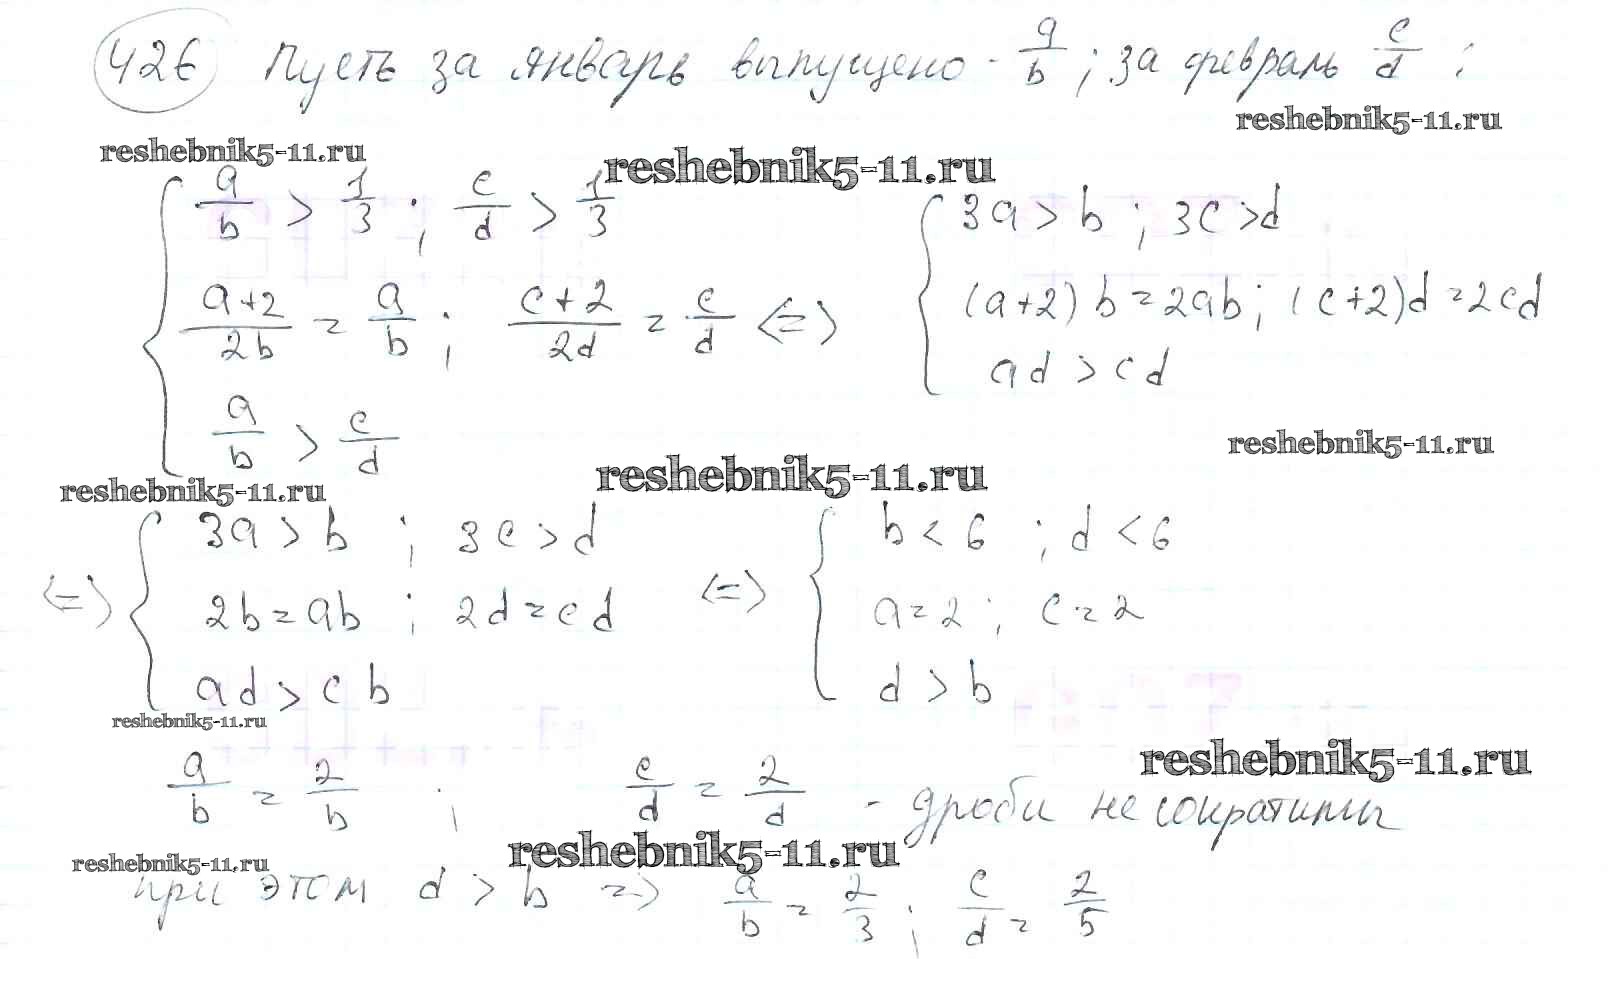 426 Пусть за январь выпущено - a/b ; за февраль c/d :
reshebnik5-11.ru
reshebnik5-11.ru reshebnik5-11.ru
{ a/b > 1/3 ; c/d > 1/3
(a+2)/2b = a/b ; (c+2)/2d = c/d <=>
a/b > c/d
{ 3a > b ; 3c > d
(a+2)b = 2ab ; (c+2)d = 2cd
ad > cd
reshebnik5-11.ru
reshebnik5-11.ru reshebnik5-11.ru
<=> { 3a > b ; 3c > d
2b = ab ; 2d = cd
ad > cb
<=> { b < 6 ; d < 6
a = 2 ; c = 2
d > b
reshebnik5-11.ru
reshebnik5-11.ru
a/b = 2/b ; c/d = 2/d - дроби не сократимы
reshebnik5-11.ru reshebnik5-11.ru
при этом d > b => a/b = 2/3 ; c/d = 2/5